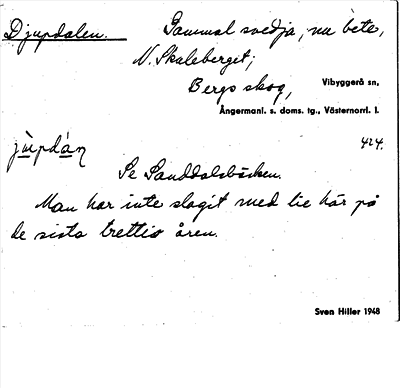 Djupdalen. Gammal svedja, nu bete,
N. Skaleberget;
Bergs skog,
Vibyggerå sn,
Ångermanl. s. doms. tg., Västernorrl. l.
jùpdán 424.
Se Sanddalsbäcken.
Man har inte slagit med lie här på
de sista trettio åren.
Sven Hiller 1948